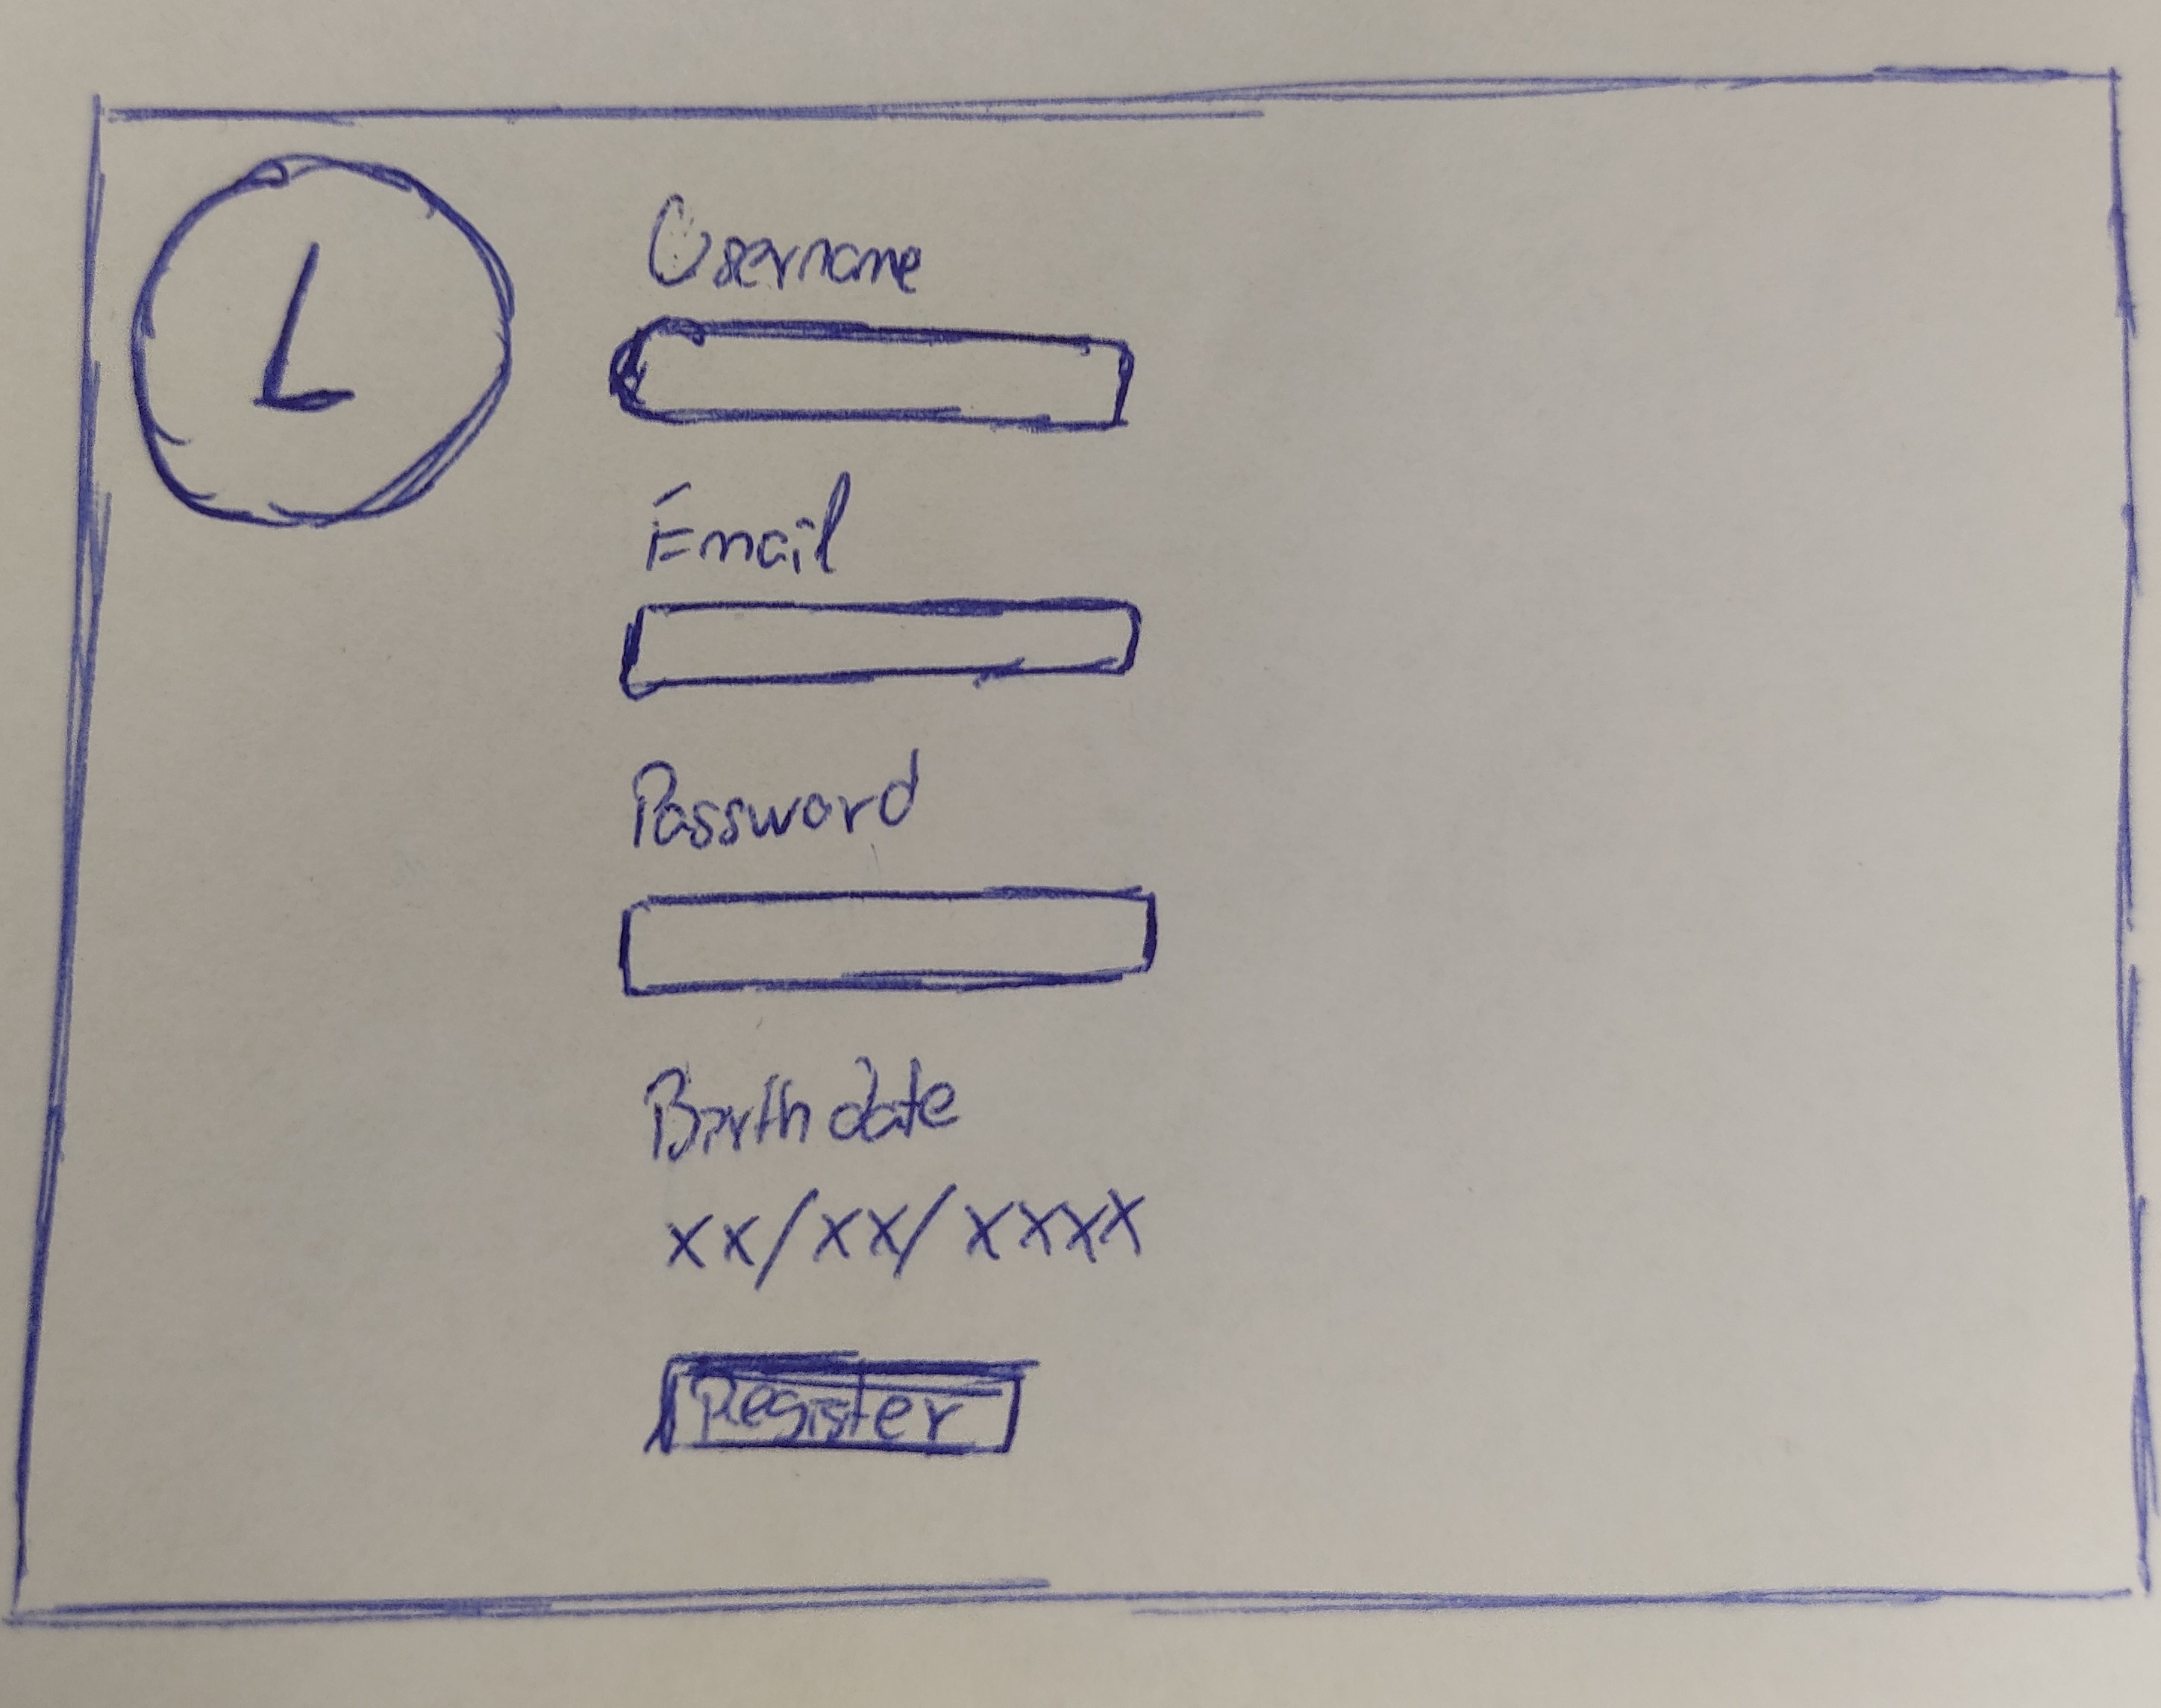 L
Username
Email
Password
Birthdate
xx/xx/xxxx
Register